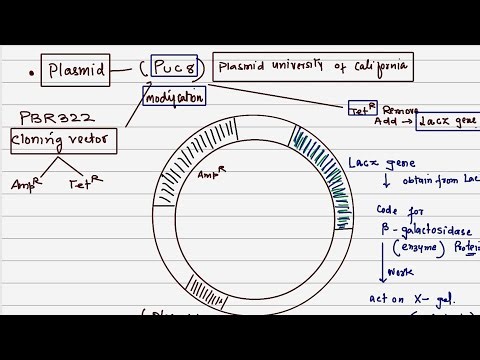 • Plasmid — (PUC8) Plasmid university of California
modiycation
PBR322
Cloning vector
Amp^R Tet^R
Tet^R Remove
Add → Lacz gene
Amp^R
Lacz gene
↓ obtain from Lac
Code for
β-galactosidase
(enzyme) Protein
↓ Work
act on X-gal.